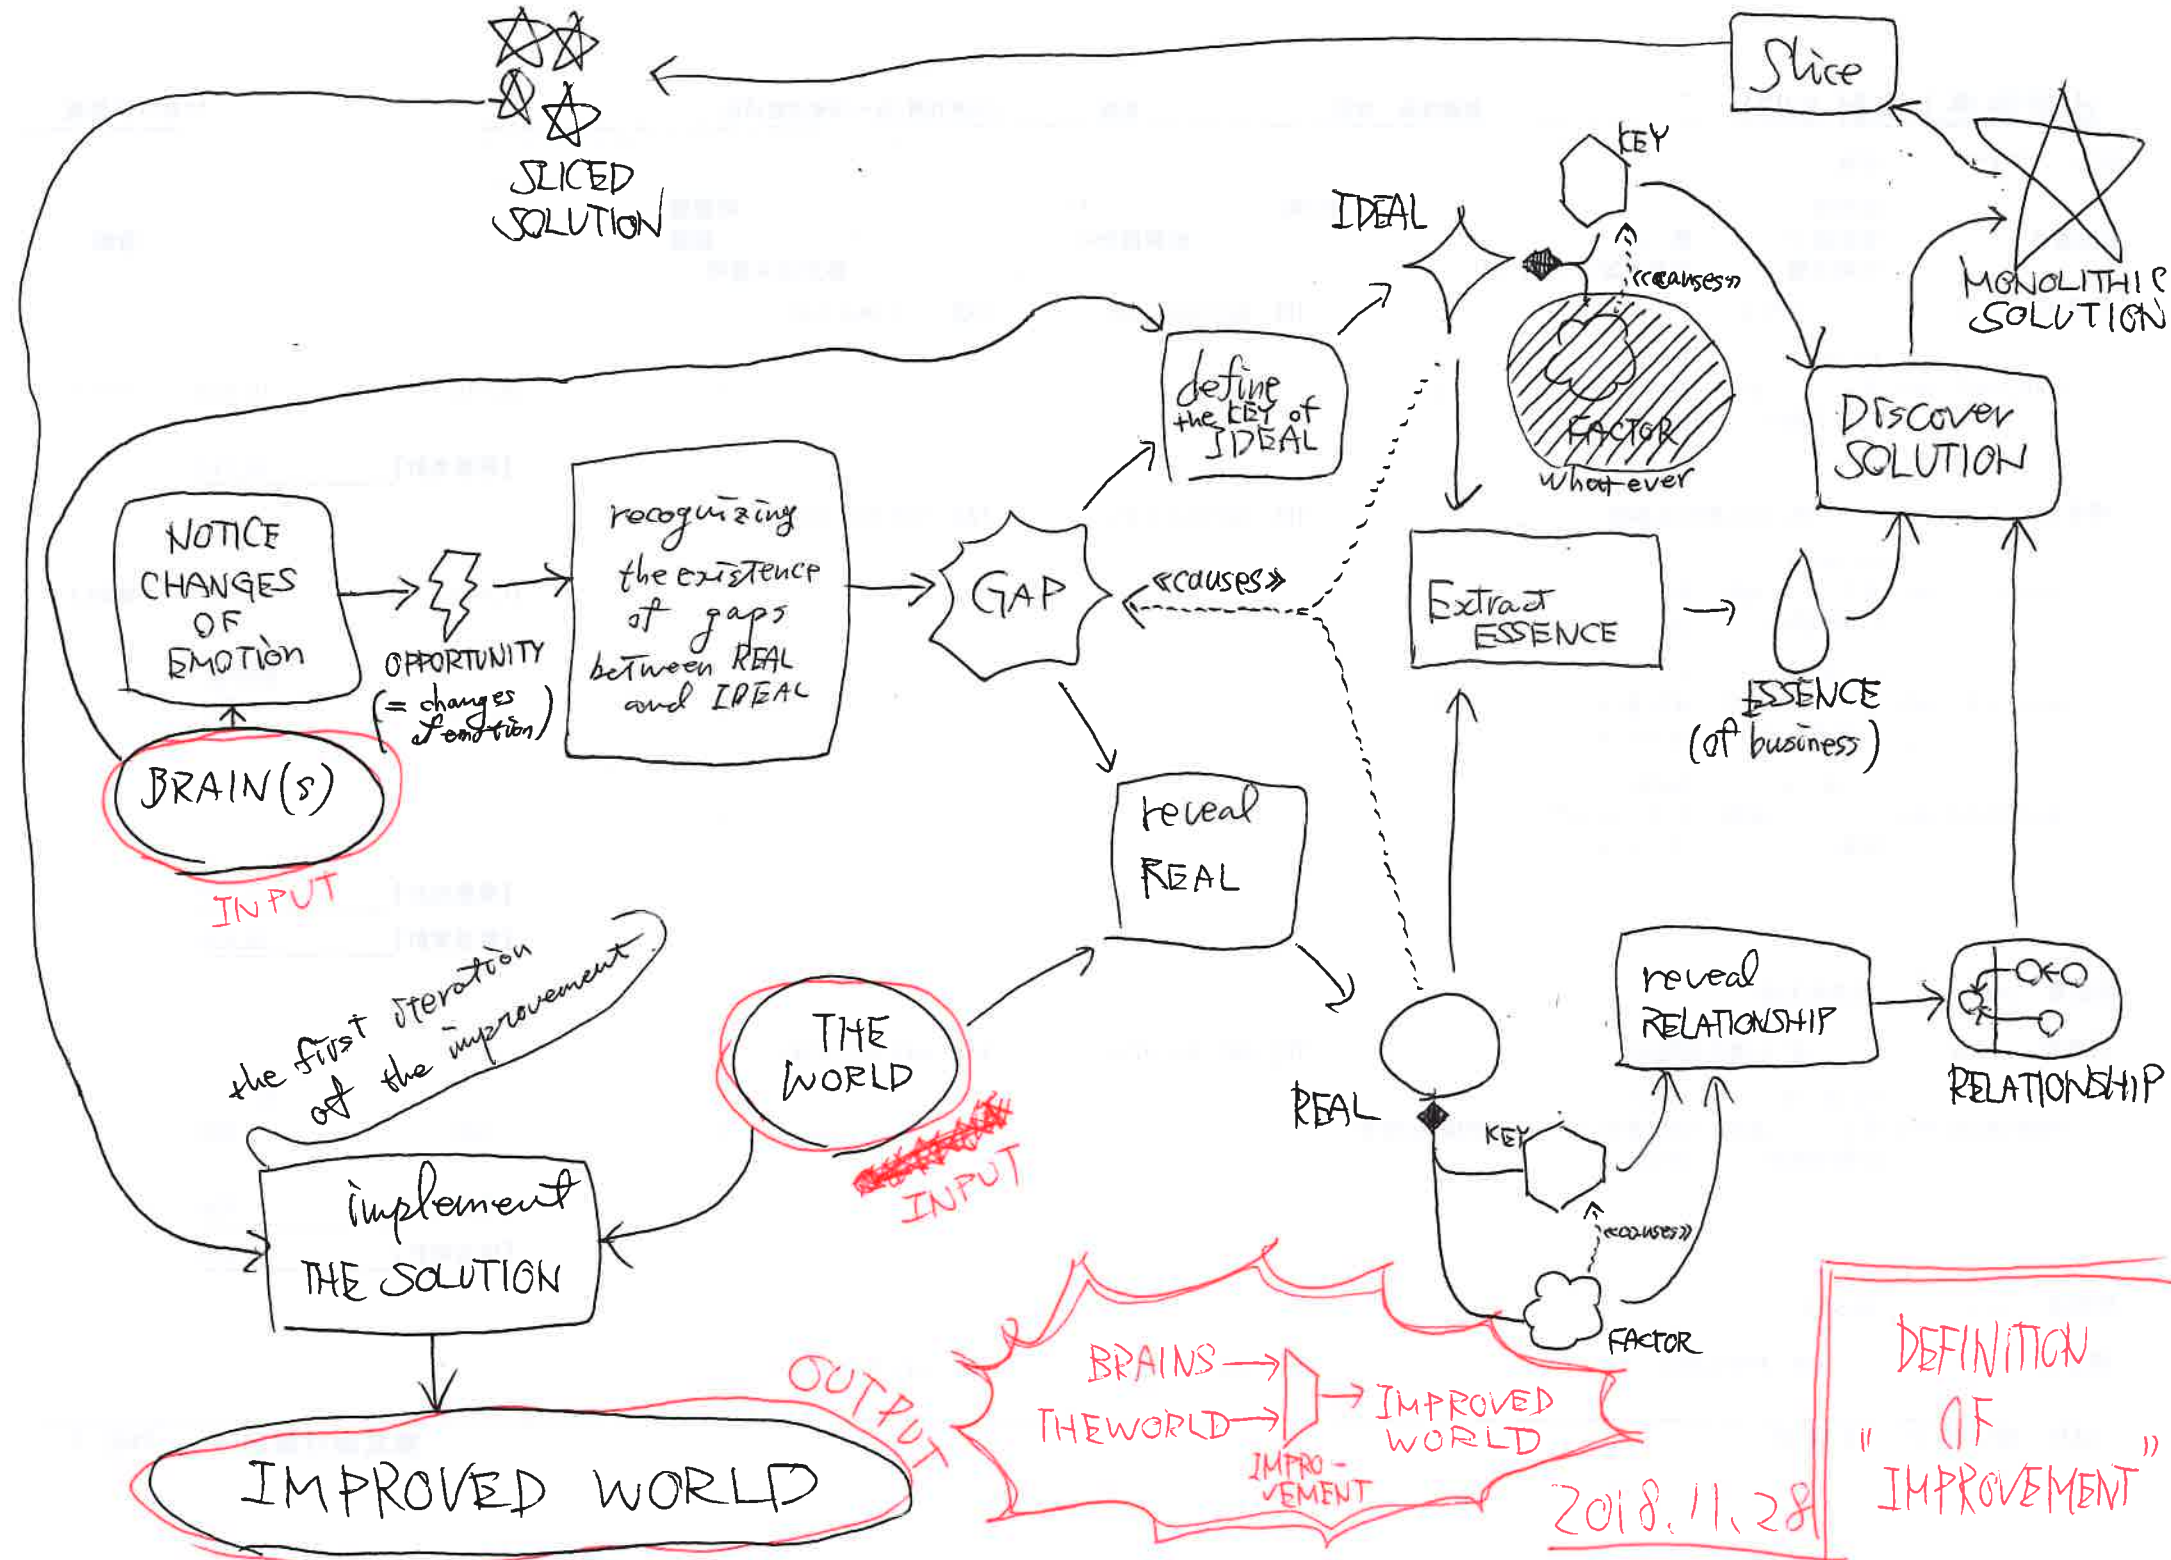 Slice
SLICED
SOLUTION
KEY
IDEAL
<<causes>>
MONOLITHIC
SOLUTION
define
the KEY of
IDEAL
FACTOR
whatever
Discover
SOLUTION
NOTICE
CHANGES
OF
EMOTION
OPPORTUNITY
(= changes
of emotion)
recognizing
the existence
of gaps
between REAL
and IDEAL
GAP
<<causes>>
Extract
ESSENCE
ESSENCE
(of business)
BRAIN(s)
INPUT
reveal
REAL
the first iteration
of the improvement
THE
WORLD
INPUT
REAL
KEY
<<causes>>
FACTOR
reveal
RELATIONSHIP
RELATIONSHIP
implement
THE SOLUTION
OUTPUT
IMPROVED WORLD
BRAINS
THE WORLD
IMPRO-
VEMENT
IMPROVED
WORLD
2018.11.28
DEFINITION
OF
"IMPROVEMENT"